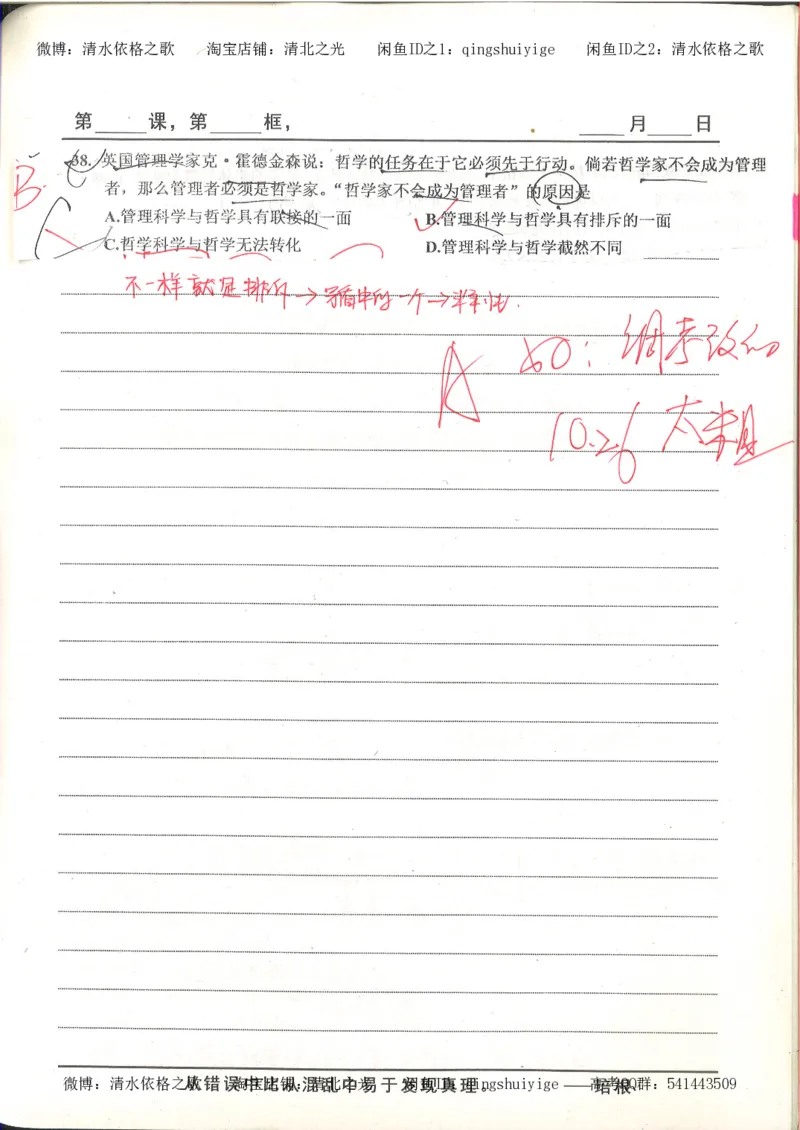 微博：清水依格之歌 淘宝店铺：清北之光 闲鱼ID之1：qingshuiyige 闲鱼ID之2：清水依格之歌
第____课，第____框， ____月____日
38. 英国管理学家克·霍德金森说：哲学的任务在于它必须先于行动。倘若哲学家不会成为管理
B.
者，那么管理者必须是哲学家。“哲学家不会成为管理者”的原因是
A.管理科学与哲学具有联接的一面 B.管理科学与哲学具有排斥的一面
C.哲学科学与哲学无法转化 D.管理科学与哲学截然不同
不一样就是排斥→矛盾中的一个→
A
10.26
微博：清水依格之歌 淘宝店铺：清北之光 闲鱼ID：qingshuiyige 高考QQ群：541443509
从错误中比从混乱中易于发现真理。——培根